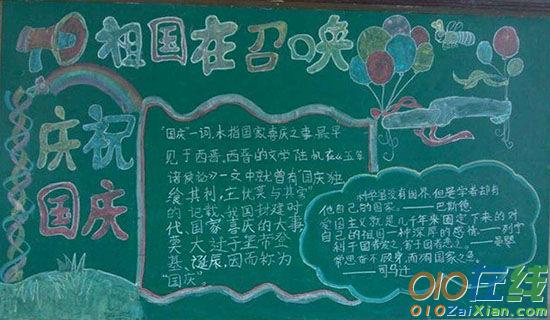 祖国在召唤
庆祝
国庆
"国庆"一词,本指国家喜庆之事,最早
见于西晋,西晋的文学陆机在《五等
诸侯论》一文中就曾有"国庆独
飨其利,主忧莫与其害"
的记载,我国封建时
代、国家喜庆的大事
莫大过于皇帝登
基、诞辰,因而称为
"国庆。
科学虽没有国界,但是学者却有
他自己的国家。——巴斯德
爱国主义就是几千年来固定下来的对
自己的祖国一种深厚的感情。——列宁
利于国者爱之,害于国者恶之。——晏婴
常思奋不顾身,而殉国家之急。
——司马迁
010在线
010ZaiXian.com